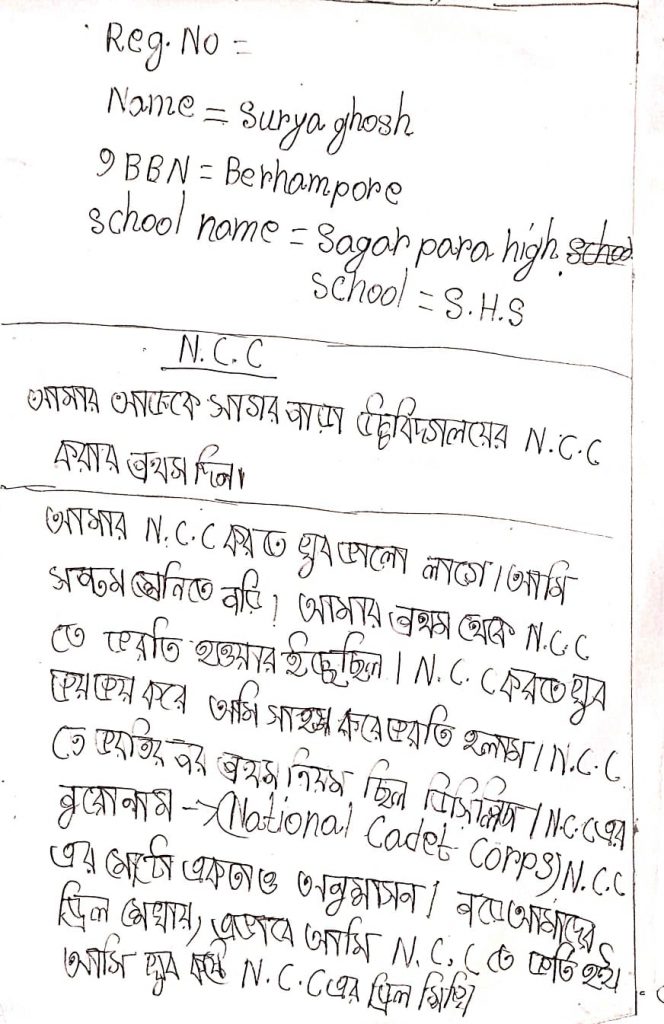 Reg. No =
Name = Surya ghosh
9 BBN = Berhampore
school name = Sagar para high
school = S.H.S
N.C.C
আমার আজকে সাগর পাড়া উচ্চবিদ্যালয়ের N.C.C
করার প্রথম দিন।
আমার N.C.C করতে খুব ভালো লাগে। আমি
সপ্তম শ্রেনিতে পড়ি। আমার প্রথম থেকে N.C.C
তে ভরতি হওয়ার ইচ্ছে ছিল। N.C.C করতে খুব
ভয় ভয় করে আমি সাহস করে ভরতি হলাম। N.C.C
তে ভরতির পর প্রথম নিয়ম ছিল ডিসিপ্লিন। N.C.C এর
পুরোনাম → (National Cadet Corps) N.C.C
এর মোটো একতা ও অনুশাসন। পরে আমাদের
ড্রিল শেখায়, এভাবে আমি N.C.C তে ভর্তি হই।
আমি খুব কষ্টে N.C.C এর ড্রিল শিখি।